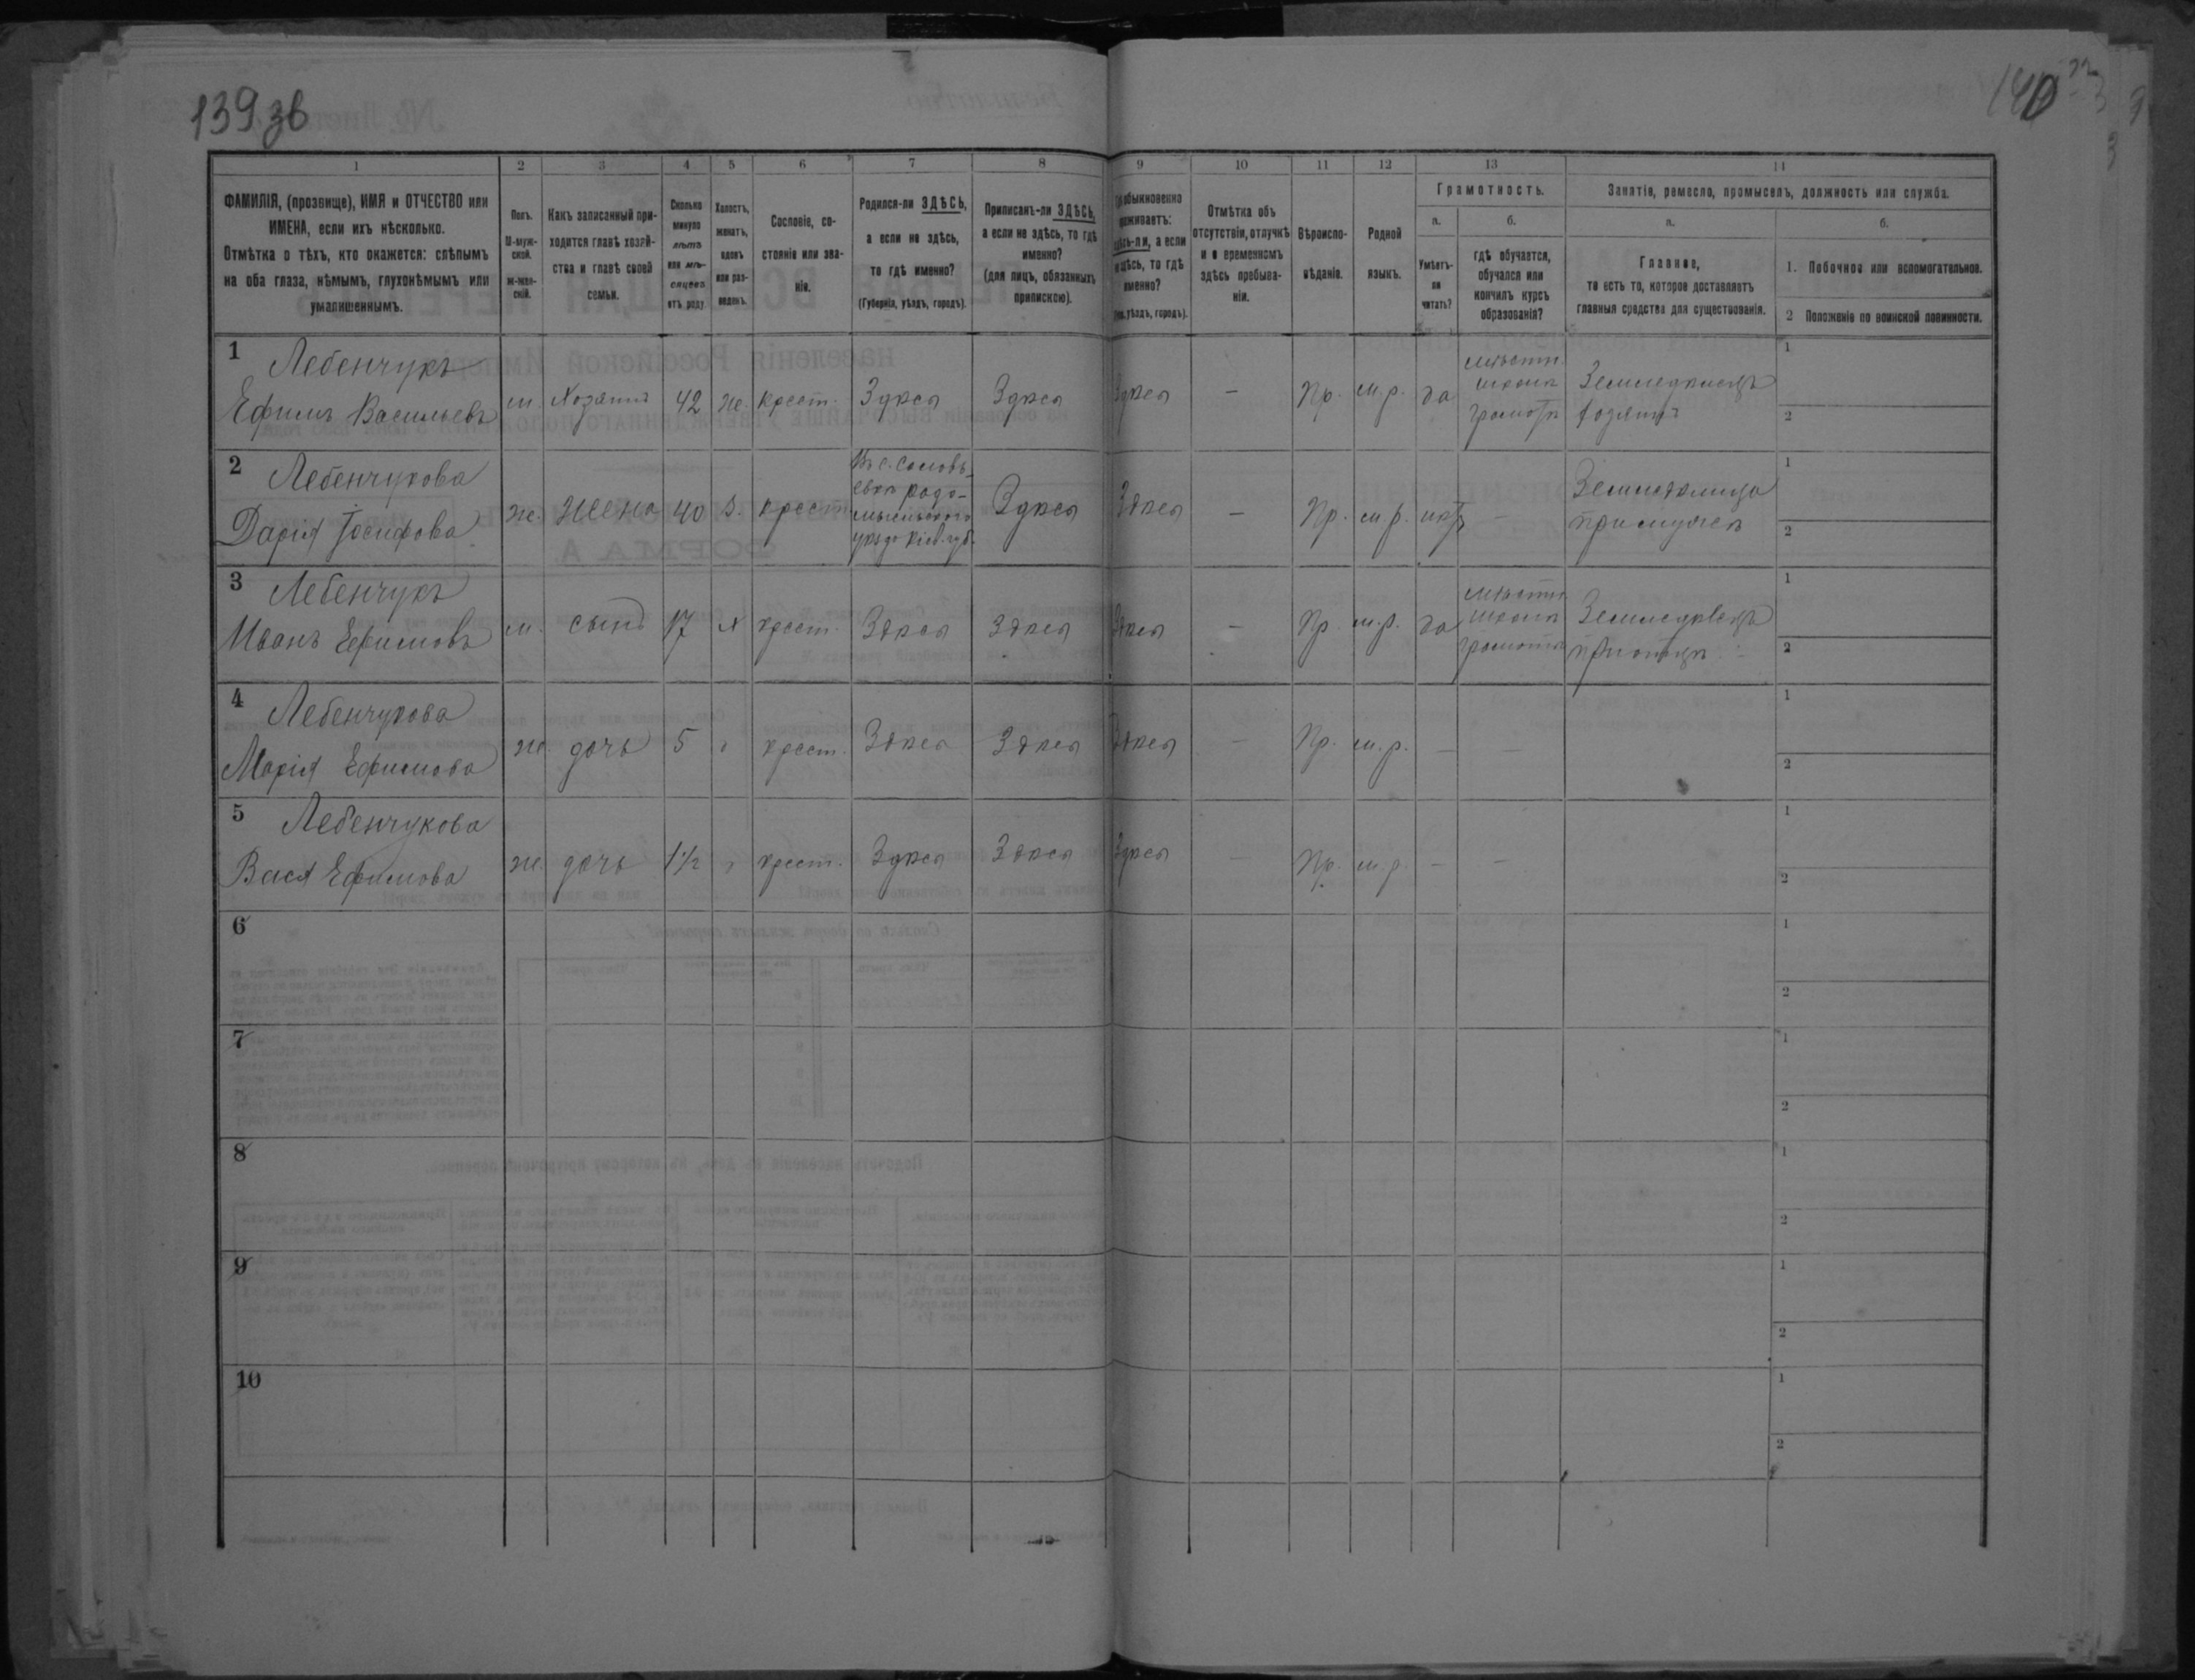 139 зв
140
1 2 3 4 5 6 7 8 9 10 11 12 13 14
ФАМИЛІЯ, (прозвище), ИМЯ и ОТЧЕСТВО или
ИМЕНА, если ихъ нѣсколько.
Отмѣтка о тѣхъ, кто окажется: слѣпымъ
на оба глаза, нѣмымъ, глухонѣмымъ или
умалишеннымъ.
Полъ.
М-муж-
ской.
Ж-жен-
скій.
Какъ записанный при-
ходится главѣ хозяй-
ства и главѣ своей
семьи.
Сколько
минуло
лѣтъ
или мѣ-
сяцевъ
отъ роду
Холостъ,
женатъ,
вдовъ
или раз-
веденъ.
Сословіе, со-
стояніе или зва-
ніе.
Родился-ли ЗДѢСЬ,
а если не здѣсь,
то гдѣ именно?
(Губернія, уѣздъ, городъ).
Приписанъ-ли ЗДѢСЬ,
а если не здѣсь, то гдѣ
именно?
(для лицъ, обязанныхъ
припискою).
обыкновенно
проживаетъ:
здѣсь-ли, а если
не здѣсь, то гдѣ
именно?
уѣздъ, городъ).
Отмѣтка объ
отсутствіи, отлучкѣ
и о временномъ
здѣсь пребыва-
ніи.
Вѣроиспо-
вѣданіе.
Родной
языкъ.
Грамотность.
а.
Умѣетъ-
ли
читать?
б.
гдѣ обучается,
обучался или
кончилъ курсъ
образованія?
Занятіе, ремесло, промыселъ, должность или служба.
а.
Главное,
то есть то, которое доставляетъ
главныя средства для существованія.
б.
1. Побочное или вспомогательное.
2 Положеніе по воинской повинности.
1 Лебенчукъ
Ефимъ Васильевъ м. Хозяинъ 42 ж. крест. Здѣсь Здѣсь Здѣсь — Пр. м.р. да
школѣ
грамоты
Земледѣлецъ
хозяинъ
1
2
2 Лебенчукова
Дарія Іосифова ж. жена 40 З. крест.
Въ с. Соловь-
евкѣ Радо-
мысльского
уѣзда Кіев. губ.
Здѣсь Здѣсь — Пр. м.р. нѣтъ —
при мужѣ
1
2
3 Лебенчукъ
Иванъ Ефимовъ м. сынъ 17 Х крест. Здѣсь Здѣсь Здѣсь — Пр. м.р. да
школѣ
грамоты
Земледѣлецъ
при отцѣ
1
2
4 Лебенчукова
Марія Ефимова ж. дочь 5 крест. Здѣсь Здѣсь Здѣсь — Пр. м.р. — —
1
2
5 Лебенчукова
Вася Ефимова ж. дочь 1½ крест. Здѣсь Здѣсь Здѣсь — Пр. м.р. — —
1
2
6
1
2
7
1
2
8
1
2
9
1
2
10
1
2